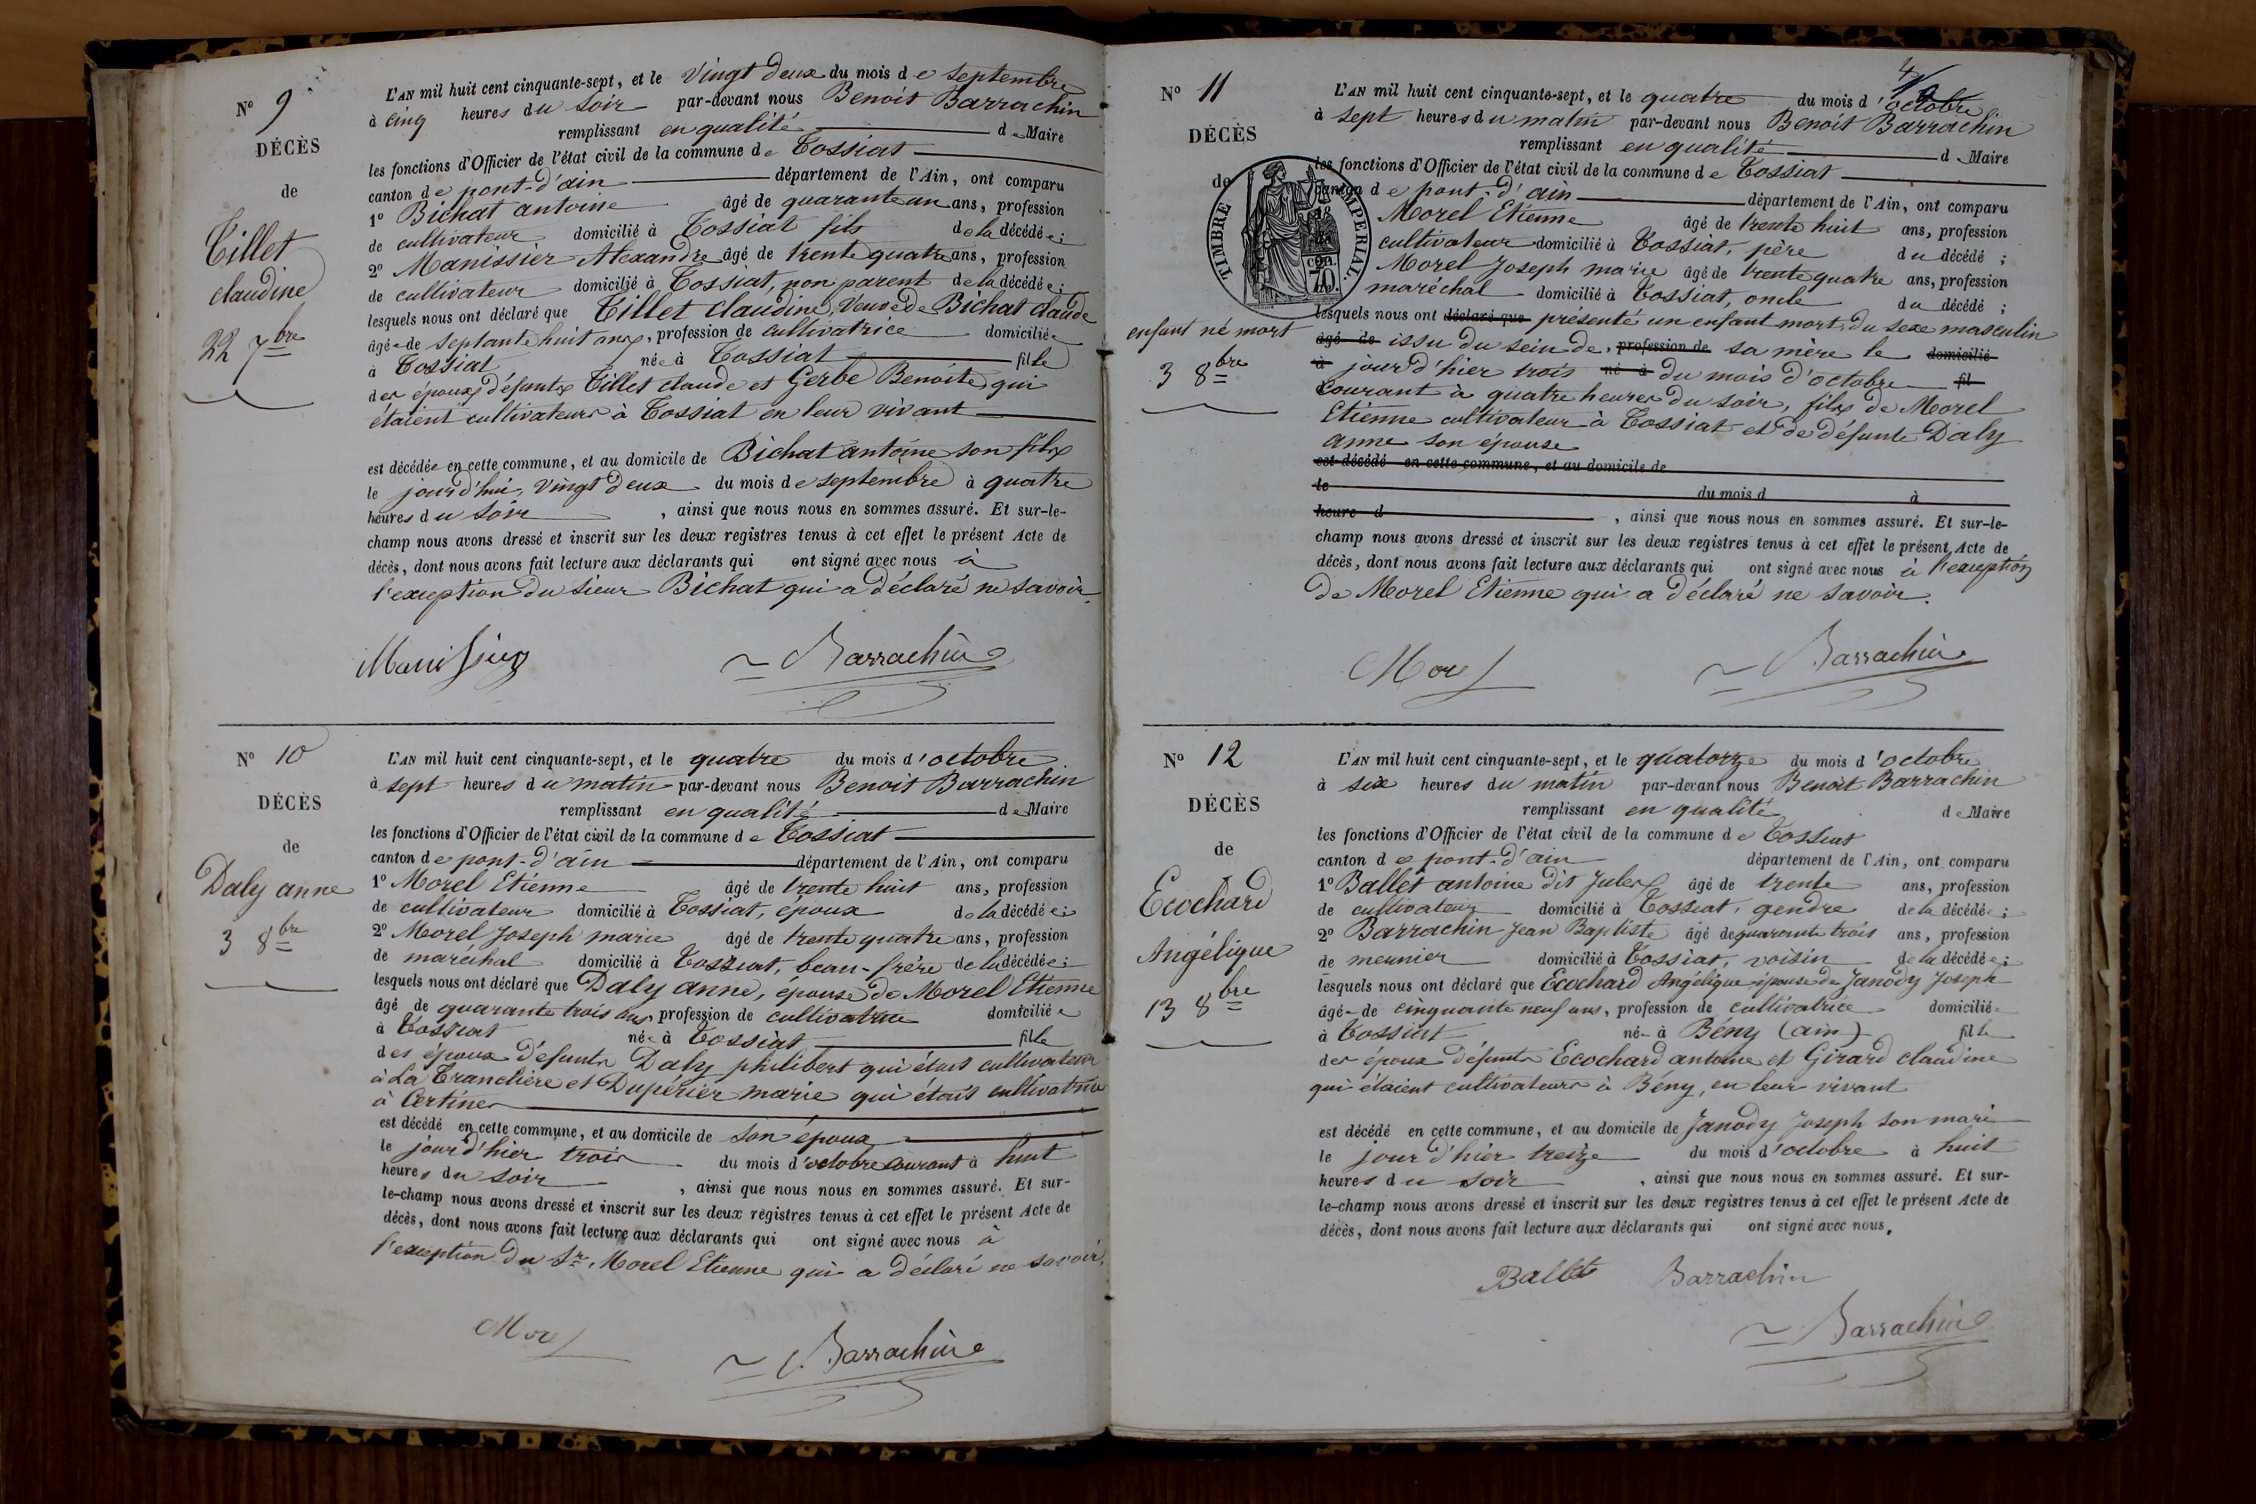 N° 9
DÉCÈS
de
Tillet
claudine
22 7bre
L'AN mil huit cent cinquante-sept, et le vingt deux du mois de septembre
à cinq heures du soir par-devant nous Benoit Barrachin
remplissant en qualité de Maire
les fonctions d'Officier de l'état civil de la commune de Tossiat
canton de pont-d'ain département de l'Ain, ont comparu
1° Bichat antoine âgé de quarante un ans, profession
de cultivateur domicilié à Tossiat fils de la décédée;
2° Manissier Alexandre âgé de trente quatre ans, profession
de cultivateur domicilié à Tossiat, non parent de la décédée;
lesquels nous ont déclaré que Tillet claudine, Veuve de Bichat claude
âgée de septante huit ans, profession de cultivatrice domiciliée
à Tossiat née à Tossiat fille
des époux défunts Tillet claude et Gerbe Benoite qui
étaient cultivateurs à Tossiat en leur vivant
est décédée en cette commune, et au domicile de Bichat antoine son fils
le jourd'hui, vingt deux du mois de septembre à quatre
heures du soir, ainsi que nous nous en sommes assuré. Et sur-le-
champ nous avons dressé et inscrit sur les deux registres tenus à cet effet le présent Acte de
décès, dont nous avons fait lecture aux déclarants qui ont signé avec nous à
l'exception du sieur Bichat qui a déclaré ne savoir.
Manissier Barrachin
N° 10
DÉCÈS
de
Daly anne
3 8bre
L'AN mil huit cent cinquante-sept, et le quatre du mois d'octobre
à sept heures du matin par-devant nous Benoit Barrachin
remplissant en qualité de Maire
les fonctions d'Officier de l'état civil de la commune de Tossiat
canton de pont-d'ain département de l'Ain, ont comparu
1° Morel Etienne âgé de trente huit ans, profession
de cultivateur domicilié à Tossiat, époux de la décédée;
2° Morel Joseph marie âgé de trente quatre ans, profession
de maréchal domicilié à Tossiat, beau-frère de la décédée;
lesquels nous ont déclaré que Daly anne, epouse de Morel Etienne
âgé de quarante trois ans, profession de cultivatrice domiciliée
à Tossiat née à Tossiat fille
des époux défunts Daly philibert qui était cultivateur
à La Tranclière et Dupérier marie qui était cultivatrice
à Certines
est décédé en cette commune, et au domicile de son époux
le jour d'hier trois du mois d'octobre courant à huit
heures du soir, ainsi que nous nous en sommes assuré. Et sur-
le-champ nous avons dressé et inscrit sur les deux registres tenus à cet effet le présent Acte de
décès, dont nous avons fait lecture aux déclarants qui ont signé avec nous à
l'exception du Sr. Morel Etienne qui a déclaré ne savoir.
Morel Barrachin
4
N° 11
DÉCÈS
de
enfant né mort
3 8bre
TIMBRE IMPÉRIAL.
L'AN mil huit cent cinquante-sept, et le quatre du mois d'octobre
à sept heures du matin par-devant nous Benoit Barrachin
remplissant en qualité de Maire
les fonctions d'Officier de l'état civil de la commune de Tossiat
canton de pont-d'ain département de l'Ain, ont comparu
Morel Etienne âgé de trente huit ans, profession
cultivateur domicilié à Tossiat, père du décédé;
Morel Joseph marie âgé de trente quatre ans, profession
maréchal domicilié à Tossiat, oncle du décédé;
lesquels nous ont déclaré que présenté un enfant mort, du sexe masculin
âgé de issu du sein de, profession de sa mère le domicilié
à jour d'hier trois né à du mois d'octobre fil
courant à quatre heures du soir, fils de Morel
Etienne cultivateur à Tossiat et de défunte Daly
anne son épouse
est décédé en cette commune, et au domicile de
le du mois d à
heure d, ainsi que nous nous en sommes assuré. Et sur-le-
champ nous avons dressé et inscrit sur les deux registres tenus à cet effet le présent Acte de
décès, dont nous avons fait lecture aux déclarants qui ont signé avec nous à l'exception
de Morel Etienne qui a déclaré ne savoir.
Morel Barrachin
N° 12
DÉCÈS
de
Ecochard
Angélique
13 8bre
L'AN mil huit cent cinquante-sept, et le quatorze du mois d'octobre
à six heures du matin par-devant nous Benoit Barrachin
remplissant en qualité de Maire
les fonctions d'Officier de l'état civil de la commune de Tossiat
canton de pont-d'ain département de l'Ain, ont comparu
1° Ballet antoine dit Jules âgé de trente ans, profession
de cultivateur domicilié à Tossiat, gendre de la décédée;
2° Barrachin Jean Baptiste âgé de quarante trois ans, profession
de meunier domicilié à Tossiat, voisin de la décédée;
lesquels nous ont déclaré que Ecochard Angélique épouse de Janody Joseph
âgée de cinquante neuf ans, profession de cultivatrice domiciliée
à Tossiat née à Bény (ain) fille
des époux défunts Ecochard antoine et Girard claudine
qui étaient cultivateurs à Bény, en leur vivant
est décédé en cette commune, et au domicile de Janody Joseph son mari
le jour d'hier treize du mois d'octobre à huit
heures du soir, ainsi que nous nous en sommes assuré. Et sur-
le-champ nous avons dressé et inscrit sur les deux registres tenus à cet effet le présent Acte de
décès, dont nous avons fait lecture aux déclarants qui ont signé avec nous.
Ballet Barrachin
Barrachin